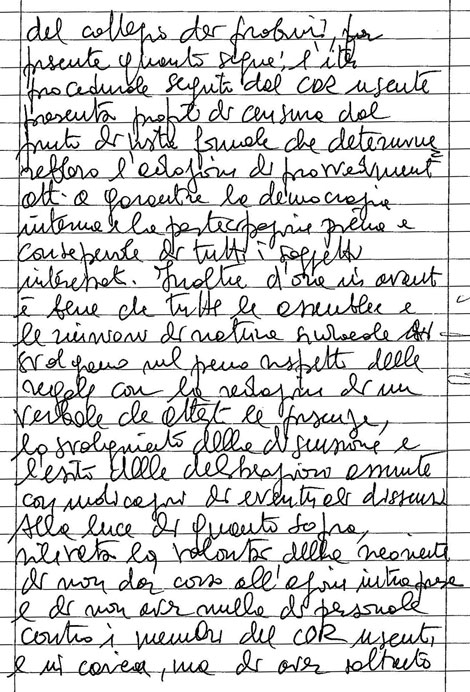 del collegio dei probiviri, fa
presente quanto segue: l'iter
procedurale seguito dal CDR uscente
presenta profili di censura dal
punto di vista formale che determinere
l'adozione di provvedimenti
atti a garantire la democrazia
interna e la partecipazione piena e
consapevole di tutti i soggetti
interessati. Inoltre d'ora in avanti
è bene che tutte le assemblee e
le riunioni di natura sindacale si
svolgano nel pieno rispetto delle
regole con la redazione di un
verbale che attesti le presenze,
lo svolgimento della discussione e
l'esito delle deliberazioni assunte
con indicazioni di eventuali dissensi
Alla luce di quanto sopra,
rilevata la volontà della ricorrente
di non dar corso all'azione intrapresa
e di non aver nulla di personale
contro i membri del CDR uscenti
e in carica, ma di aver soltanto